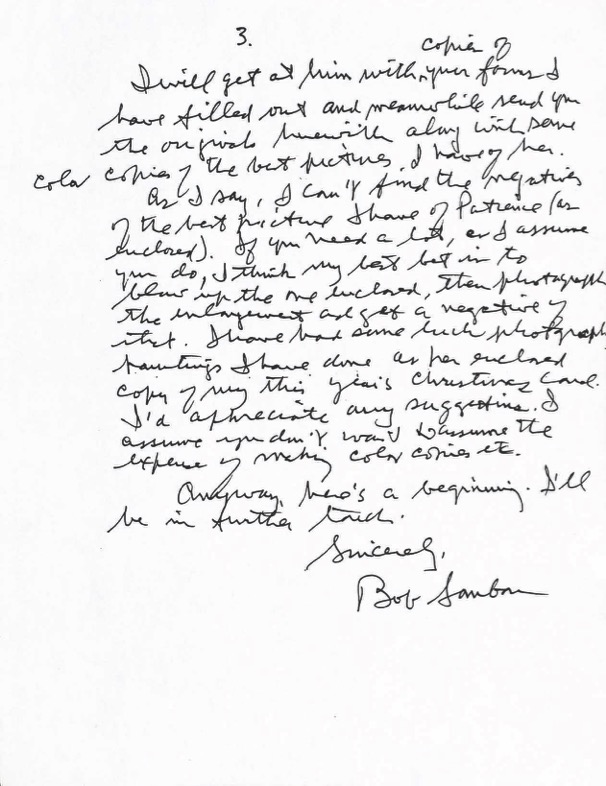 3.
copies of
I will get at him with your forms I
have filled out and meanwhile send you
the originals herewith along with some
color copies of the best pictures I have of her.
As I say, I can't find the negatives
of the best picture I have of Patience (as
enclosed). If you need a lot, as I assume
you do, I think my best bet is to
blow up the one enclosed, then photograph
the enlargement and get a negative of
that. I have had some luck photograph
paintings I have done as per enclosed
copy of my this year's Christmas card.
I'd appreciate any suggestions. I
assume you don't want to assume the
expense of making color copies etc.
Anyway, here's a beginning. I'll
be in further touch.
Sincerely,
Bob